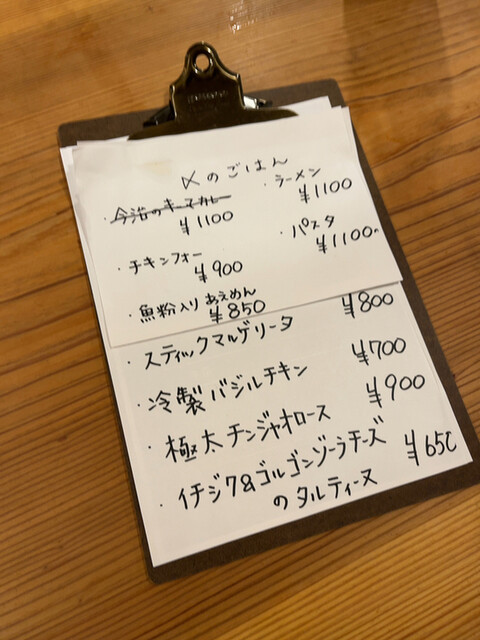 〆のごはん
・今治のキーマカレー
¥1100
・チキンフォー
¥900
・魚粉入りあえめん
¥850
・ラーメン
¥1100
・パスタ
¥1100
・スティックマルゲリータ ¥800
・冷製バジルチキン ¥700
・極太チンジャオロース ¥900
・イチジク&ゴルゴンゾーラチーズ
のタルティーヌ ¥650